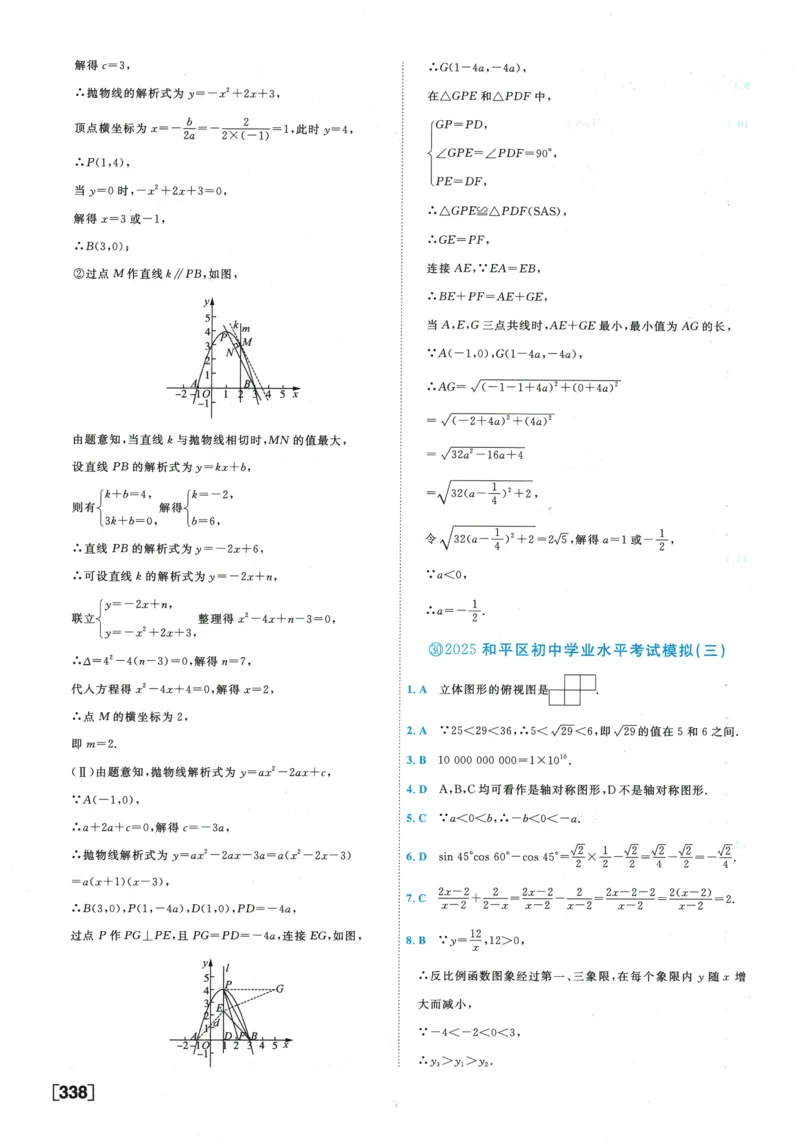 解得 c=3,
∴抛物线的解析式为 y=-x²+2x+3,
顶点横坐标为 x=-b/2a=-2/(2×(-1))=1,此时 y=4,
∴P(1,4),
当 y=0 时,-x²+2x+3=0,
解得 x=3 或-1,
∴B(3,0);
②过点 M 作直线 k∥PB,如图,
y
5
4
3
2
1
-1
-2 -1 O 1 2 3 4 5 x
A
B
P
N
M
k
m
由题意知,当直线 k 与抛物线相切时,MN 的值最大,
设直线 PB 的解析式为 y=kx+b,
则有{k+b=4, 3k+b=0, 解得{k=-2, b=6,
∴直线 PB 的解析式为 y=-2x+6,
∴可设直线 k 的解析式为 y=-2x+n,
联立{y=-2x+n, y=-x²+2x+3, 整理得 x²-4x+n-3=0,
∴Δ=4²-4(n-3)=0,解得 n=7,
代入方程得 x²-4x+4=0,解得 x=2,
∴点 M 的横坐标为 2,
即 m=2.
(Ⅱ)由题意知,抛物线解析式为 y=ax²-2ax+c,
∵A(-1,0),
∴a+2a+c=0,解得 c=-3a,
∴抛物线解析式为 y=ax²-2ax-3a=a(x²-2x-3)
=a(x+1)(x-3),
∴B(3,0),P(1,-4a),D(1,0),PD=-4a,
过点 P 作 PG⊥PE,且 PG=PD=-4a,连接 EG,如图,
y
l
5
4
3
2
1
-1
-2 -1 O 1 2 3 4 5 x
P
G
E
d
A
D
F
B
[338]
∴G(1-4a,-4a),
在△GPE 和△PDF 中,
{GP=PD,
∠GPE=∠PDF=90°,
PE=DF,
∴△GPE≌△PDF(SAS),
∴GE=PF,
连接 AE,∵EA=EB,
∴BE+PF=AE+GE,
当 A,E,G 三点共线时,AE+GE 最小,最小值为 AG 的长,
∵A(-1,0),G(1-4a,-4a),
∴AG=√((-1-1+4a)²+(0+4a)²)
=√((-2+4a)²+(4a)²)
=√(32a²-16a+4)
=√(32(a-1/4)²+2),
令√(32(a-1/4)²+2)=2√5,解得 a=1 或-1/2,
∵a<0,
∴a=-1/2.
㉚2025 和平区初中学业水平考试模拟(三)
1. A 立体图形的俯视图是 .
2. A ∵25<29<36,∴5<√29<6,即√29的值在 5 和 6 之间.
3. B 10 000 000 000=1×10¹⁰.
4. D A,B,C 均可看作是轴对称图形,D 不是轴对称图形.
5. C ∵a<0<b,∴-b<0<-a.
6. D sin 45°cos 60°-cos 45°=√2/2×1/2-√2/2=√2/4-√2/2=-√2/4.
7. C (2x-2)/(x-2)+2/(2-x)=(2x-2)/(x-2)-2/(x-2)=(2x-2-2)/(x-2)=2(x-2)/(x-2)=2.
8. B ∵y=12/x,12>0,
∴反比例函数图象经过第一、三象限,在每个象限内 y 随 x 增
大而减小,
∵-4<-2<0<3,
∴y₃>y₁>y₂.